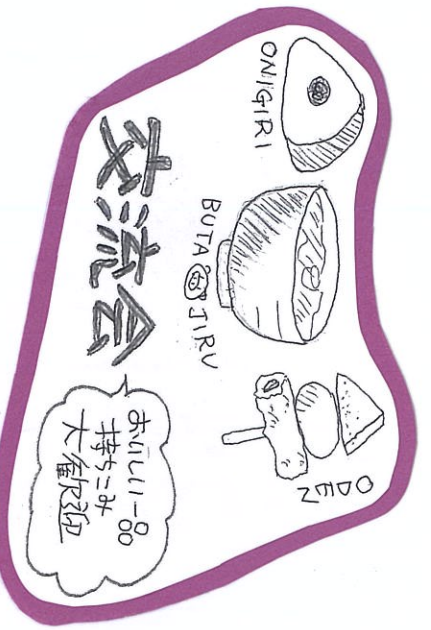 ONIGIRI
BUTA JIRU
ODEN
交流会
おいしい一品
持ちこみ
大歓迎